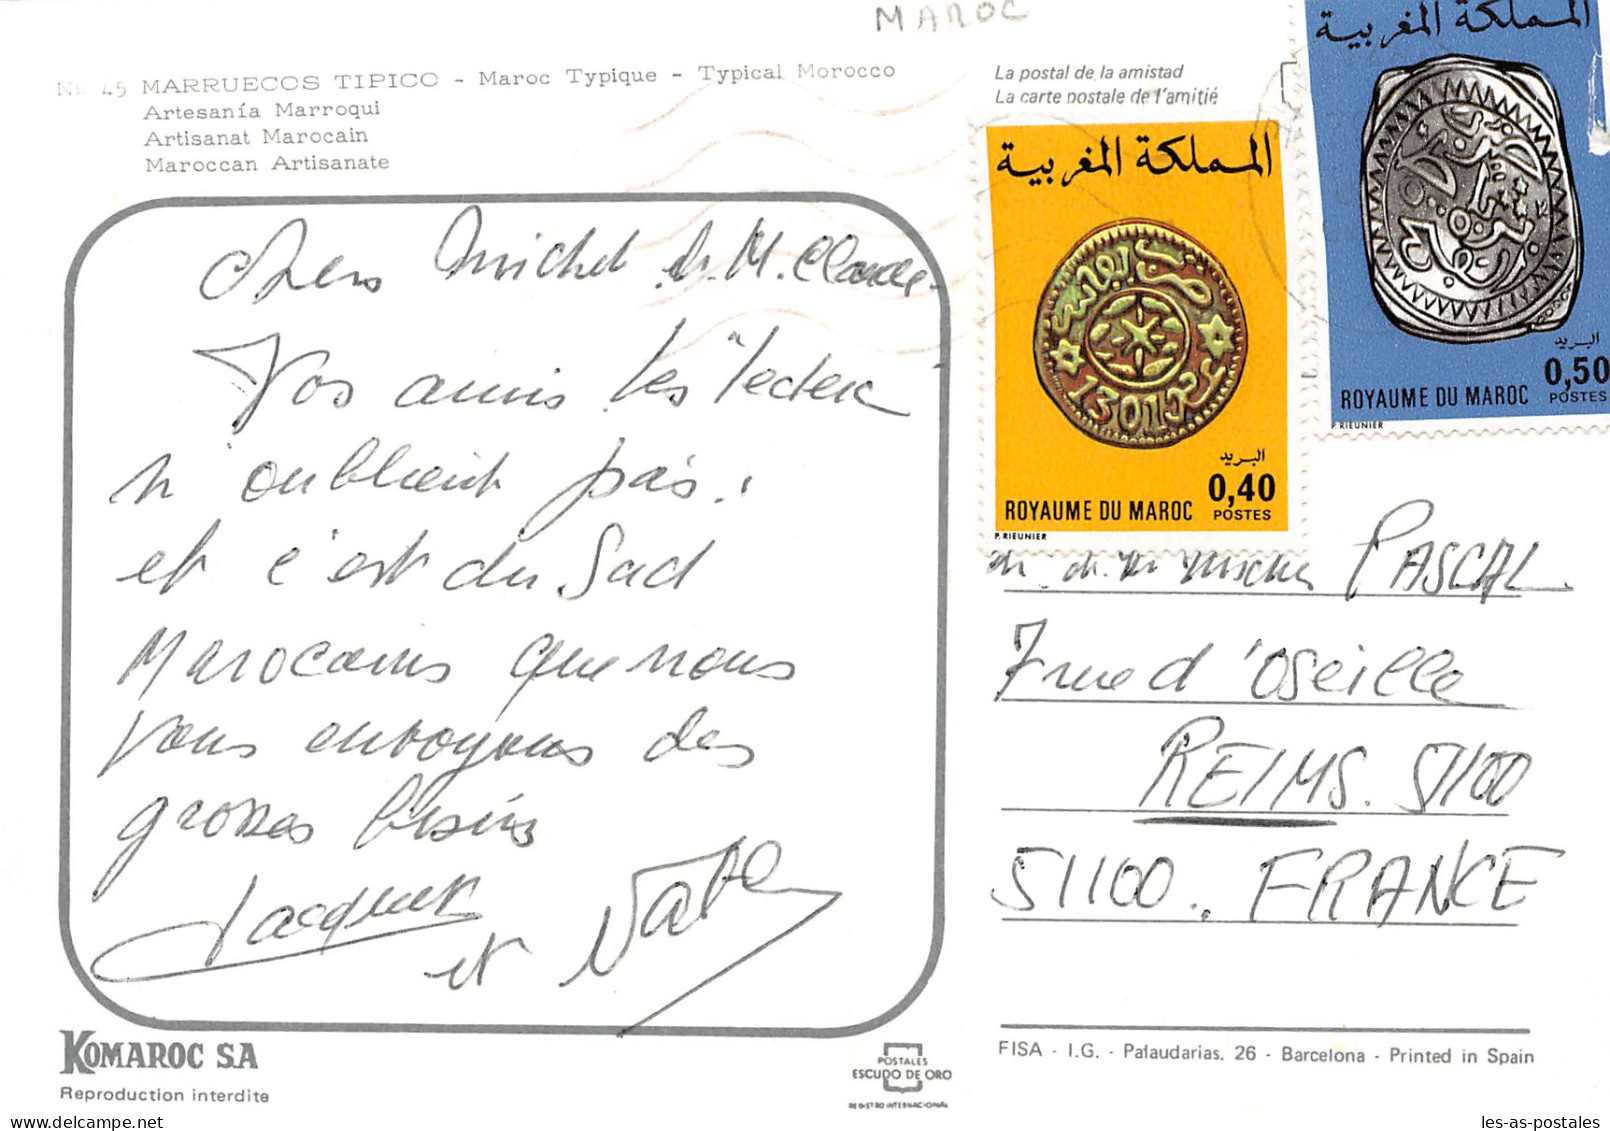 MAROC
No 45 MARRUECOS TIPICO - Maroc Typique - Typical Morocco
Artesanía Marroqui
Artisanat Marocain
Maroccan Artisanate
La postal de la amistad
La carte postale de l'amitié
المملكة المغربية
البريد
0,50
ROYAUME DU MAROC POSTES
P. RIEUNIER
المملكة المغربية
1301
البريد
0,40
ROYAUME DU MAROC POSTES
P. RIEUNIER
Chers Michel et M. Claude
Vos amis les
n'oublient pas.
et c'est du Sud
Marocains que nous
vous envoyons des
grosses bises
Jacques
et
PASCAL
7 rue d'Oseille
REIMS. 51100
51100. FRANCE
KOMAROC S.A
Reproduction interdite
POSTALES
ESCUDO DE ORO
REGISTRO INTERNACIONAL
FISA - I.G. - Palaudarias, 26 - Barcelona - Printed in Spain
les-as-postales